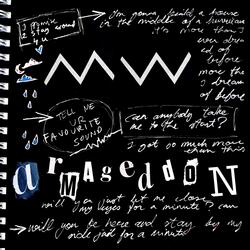 I promise
I stay around
you
I'm gonna build a house
in the middle of a hurricane
it's more than I
ever dream
ed of
before
more tha
n I
dream
ed of
before
MW
TELL
ME
UR
FAVOURITE
SOUND
can anybody take
me to the start?
I got so much more
than this
armageddon
will you just let me close
my eyes for a minute? can
will you be here and stay by my
side just for a minute?